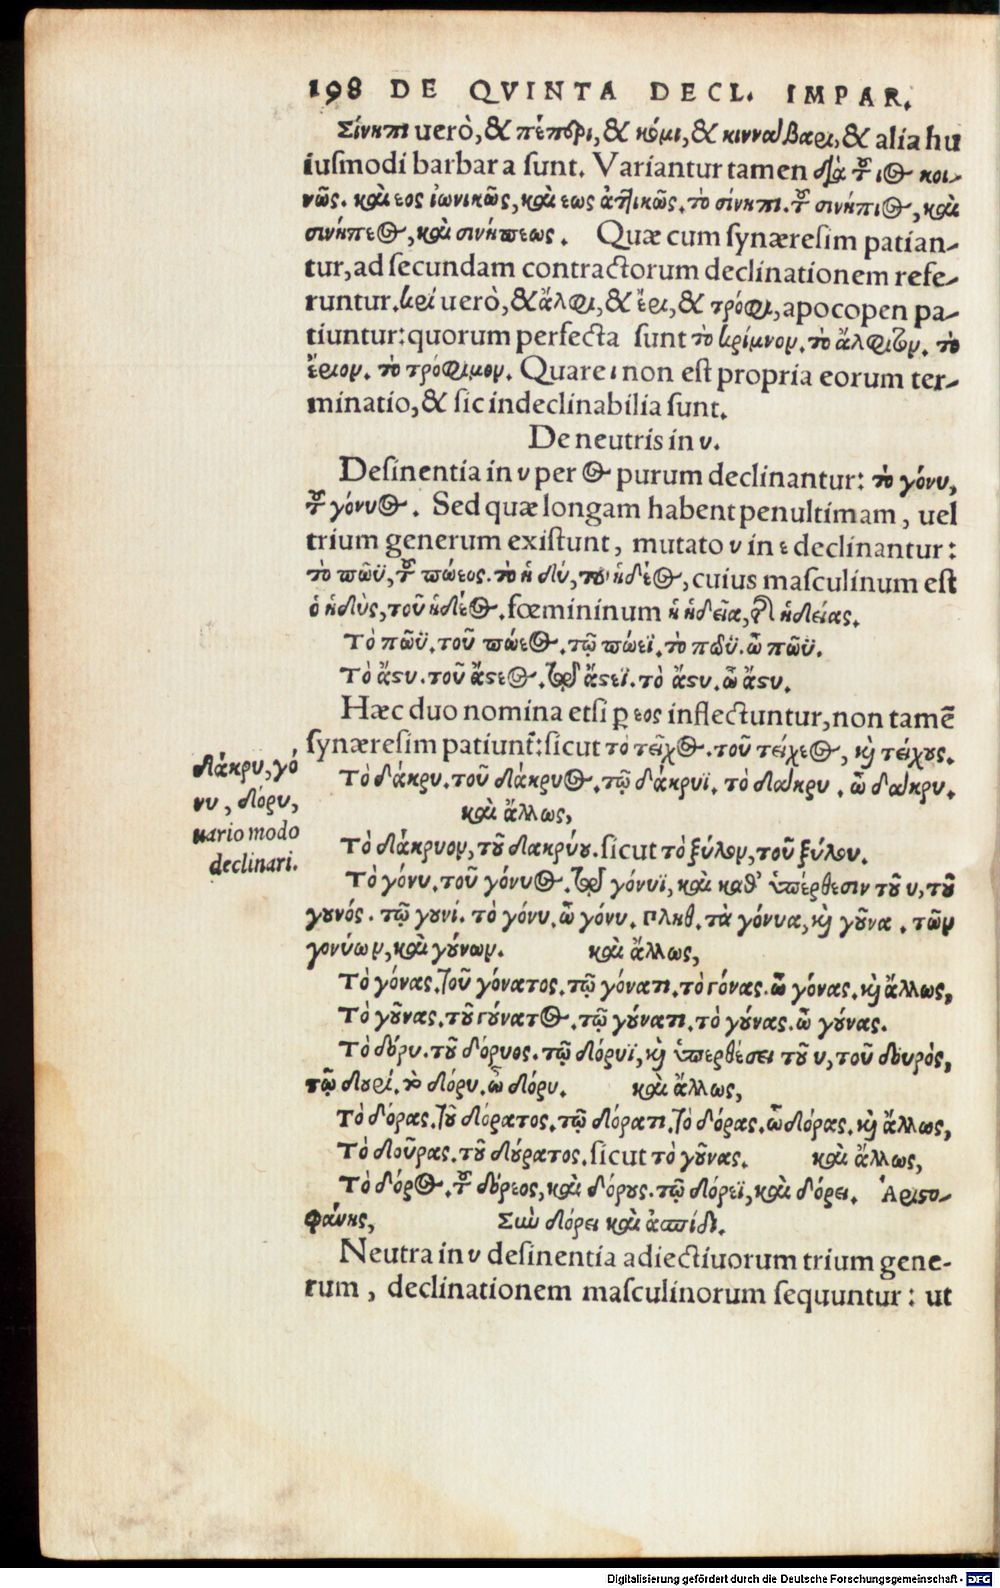 198 DE QVINTA DECL. IMPAR.
Σίνηπι uerò, & πέπερι, & κόμι, & κιννάβαρι, & alia hu
iusmodi barbara sunt. Variantur tamen διὰ τοῦ ιος κοι-
νῶς. καὶ εος ἰωνικῶς, καὶ εως ἀττικῶς. τὸ σίνηπι. τοῦ σινήπιος, καὶ
σινήπεος, καὶ σινήπεως. Quæ cum synæresim patian-
tur, ad secundam contractorum declinationem refe-
runtur. κρί uerò, & ἄλφι, & ἔρι, & τρόφι, apocopen pa-
tiuntur: quorum perfecta sunt τὸ κρίμνον. τὸ ἄλφιτον. τὸ
ἔριον. τὸ τρόφιμον. Quare ι non est propria eorum ter-
minatio, & sic indeclinabilia sunt.
De neutris in υ.
Desinentia in υ per ος purum declinantur: τὸ γόνυ,
τοῦ γόνυος. Sed quæ longam habent penultimam, uel
trium generum existunt, mutato υ in ε declinantur:
τὸ πῶϋ, τοῦ πώεος. τὸ ἡδύ, τοῦ ἡδέος, cuius masculinum est
ὁ ἡδὺς, τοῦ ἡδέος. fœmininum ἡ ἡδεῖα, τῆς ἡδείας.
Τὸ πῶϋ. τοῦ πώεος. τῷ πώεϊ. τὸ πῶϋ. ὦ πῶϋ.
Τὸ ἄστυ. τοῦ ἄστεος. τῷ ἄστεϊ. τὸ ἄστυ. ὦ ἄστυ.
Hæc duo nomina etsi ꝑ εος inflectuntur, non tamẽ
synæresim patiunt̃: sicut τὸ τεῖχος. τοῦ τείχεος, καὶ τείχους.
Τὸ δάκρυ. τοῦ δάκρυος. τῷ δάκρυϊ. τὸ δάκρυ. ὦ δάκρυ.
καὶ ἄλλως,
Τὸ δάκρυον, τοῦ δακρύου. sicut τὸ ξύλον, τοῦ ξύλου.
Τὸ γόνυ. τοῦ γόνυος. τῷ γόνυϊ, καὶ καθ' ὑπέρθεσιν τοῦ υ, τοῦ
γουνός. τῷ γουνί. τὸ γόνυ. ὦ γόνυ. Πληθ. τὰ γόνυα, καὶ γοῦνα. τῶν
γονύων, καὶ γούνων. καὶ ἄλλως,
Τὸ γόνας. τοῦ γόνατος. τῷ γόνατι. τὸ γόνας. ὦ γόνας. καὶ ἄλλως,
Τὸ γοῦνας. τοῦ γούνατος. τῷ γούνατι. τὸ γούνας. ὦ γούνας.
Τὸ δόρυ. τοῦ δόρυος. τῷ δόρυϊ, καὶ ὑπερθέσει τοῦ υ, τοῦ δουρὸς,
τῷ δουρί. τὸ δόρυ. ὦ δόρυ. καὶ ἄλλως,
Τὸ δόρας. τοῦ δόρατος. τῷ δόρατι. τὸ δόρας. ὦ δόρας. καὶ ἄλλως,
Τὸ δοῦρας. τοῦ δούρατος. sicut τὸ γοῦνας. καὶ ἄλλως,
Τὸ δόρος. τοῦ δόρεος, καὶ δόρους. τῷ δόρεϊ, καὶ δόρει. Ἀριστο-
φάνης, Σὺν δόρει καὶ ἀσπίδι.
Neutra in υ desinentia adiectiuorum trium gene-
rum, declinationem masculinorum sequuntur: ut
δάκρυ, γό
νυ, δόρυ,
uario modo
declinari.
Digitalisierung gefördert durch die Deutsche Forschungsgemeinschaft - DFG